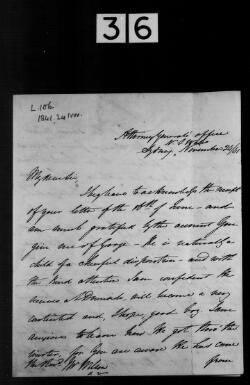 36
L.106
1841, 24 Nov.
Attorney General's office
N. S. Wales
Sydney November 24/41
My dear Sir,
I beg leave to acknowledge the receipt
of your letter of the 18th of June - and
am much gratified by the account you
give me of George - He is naturally a
child of a cheerful disposition - and with
the kind attention I am confident he
receives will become a very
contented and, I hope, good boy. I am
anxious to learn how he got thro' the
winter, for you are aware he had come
The Revd. Mr. Wilson
from